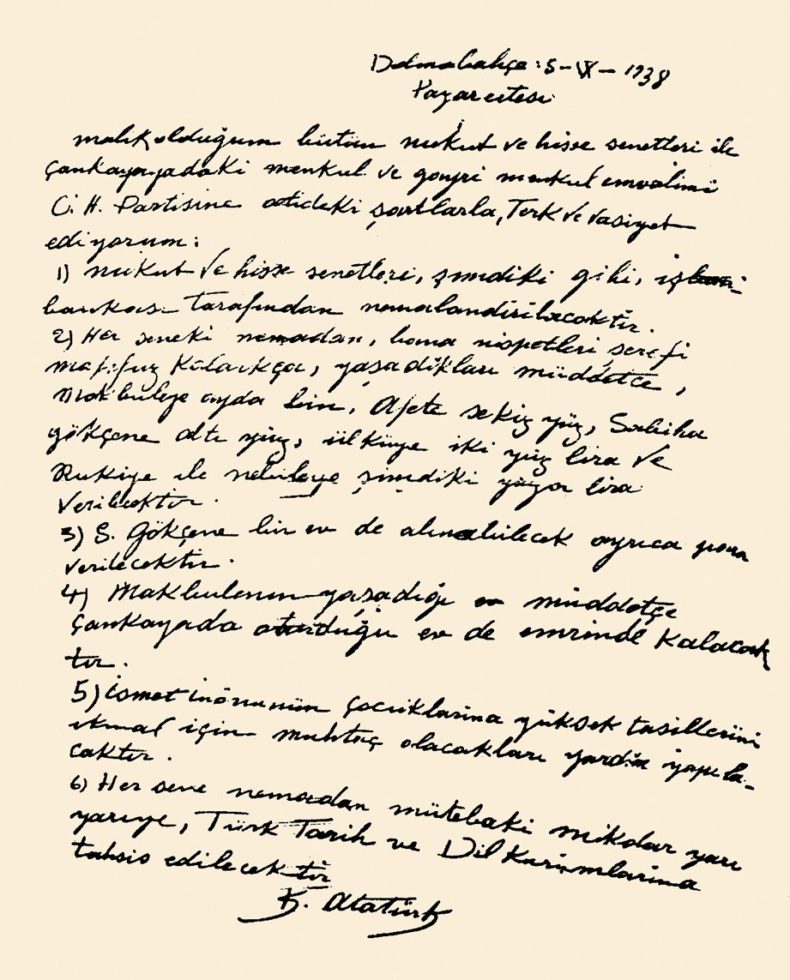 Dolmabahçe: 5-IX-1938
Pazarertesi
malik olduğum bütün nukut ve hisse senetleri ile
Çankayayadaki menkul ve gayri menkul emvalimi
C. H. Partisine atideki şartlarla, Terk ve vasiyet
ediyorum:
1) nukut ve hisse senetleri, şimdiki gibi, iş
bankası tarafından nemalandırılacaktır.
2) Her seneki nemadan, bana nispetleri şerefi
mahfuz kaldıkça, yaşadıkları müddetce,
Makbuleye ayda bin, Afete sekiz yüz, Sabiha
gökçene altı yüz, ülküye iki yüz lira ve
Rukiye ile nebileye şimdiki yüzer lira
verilecektir.
3) S. Gökçene bir ev de alınabilecek ayrıca para
verilecektir.
4) Makbulenin yaşadığı müddetçe
Çankayada oturduğu ev de emrinde kalacak
tır.
5) ismet inönunün çocuklarına yüksek tasillerini
ikmal için muhtaç olacakları yardım yapıla-
caktır.
6) Her sene nemadan mütebaki mikdar yarı
yarıye, Türk Tarih ve Dil Kurumlarına
tahsis edilecektir
K. Atatürk